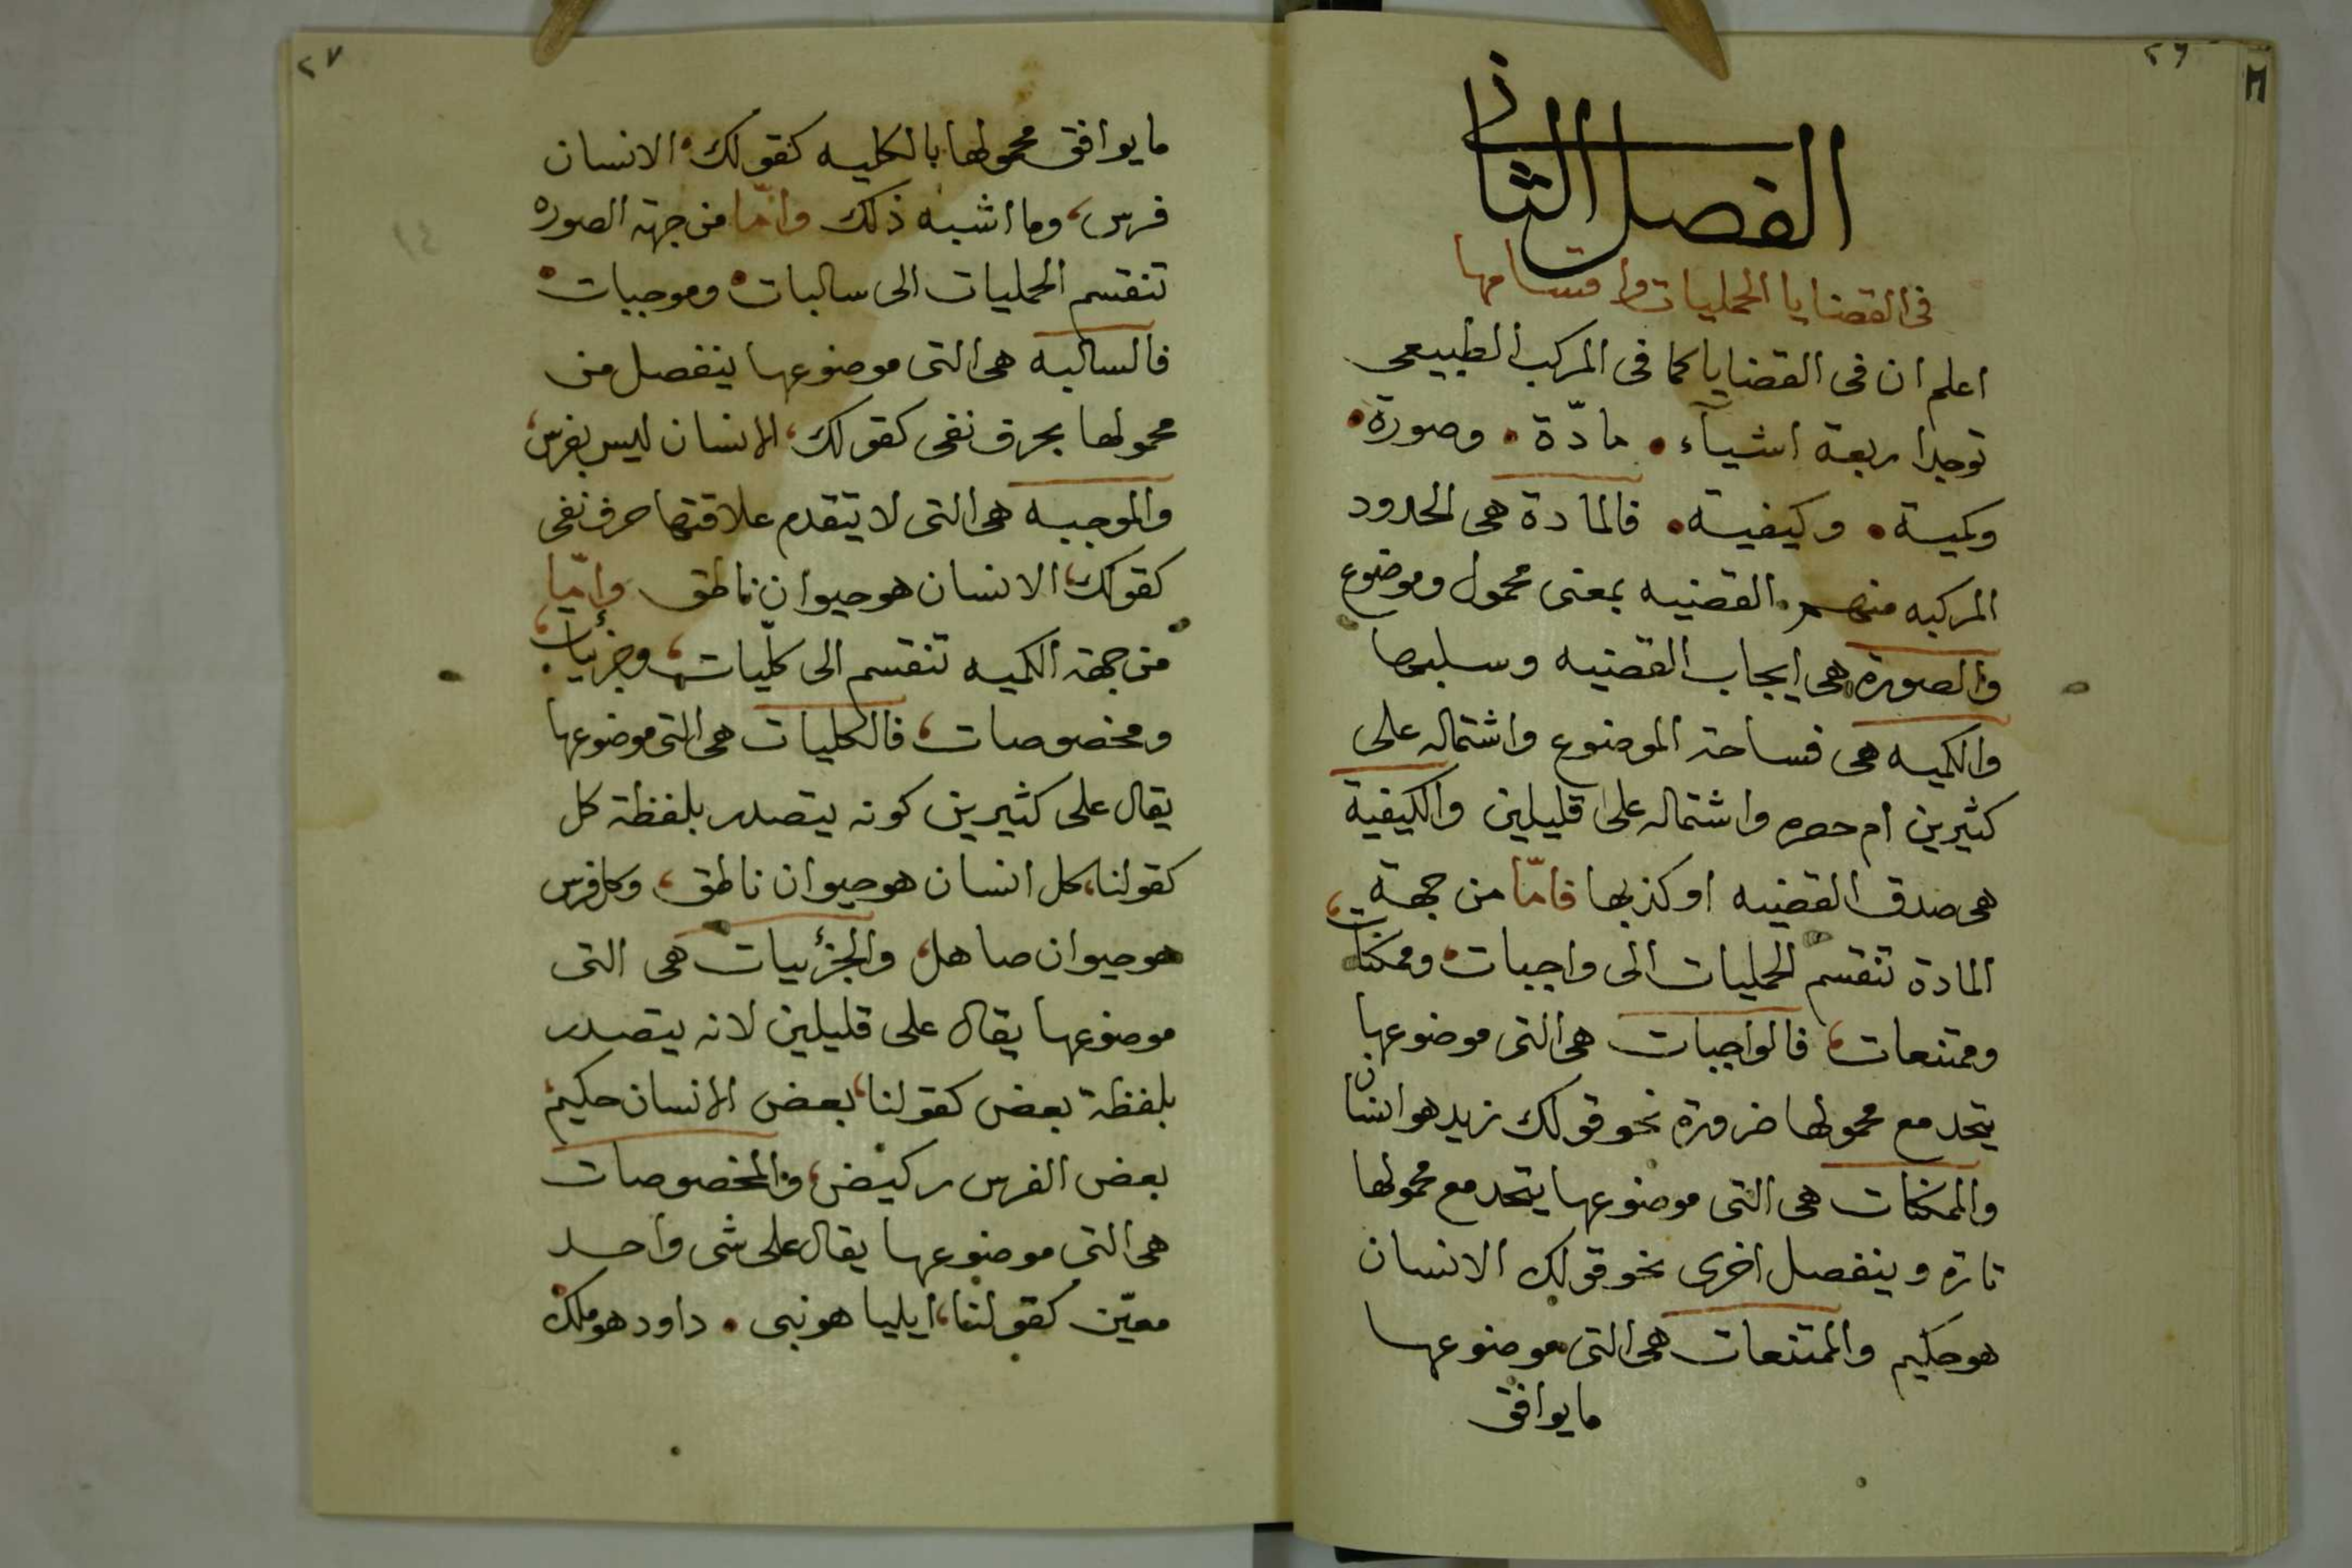 ٢٦
الفصل الثانى
فى القضايا الحمليات واقسامها
اعلم ان فى القضايا كما فى المركب الطبيعى
توجد اربعة اشيآء • مادّة • وصورة •
وكمية • وكيفية • فالمادة هى الحدود
المركبه منهم القضيه بمعنى محمول وموضوع
والصورة هى ايجاب القضيه وسلبها
والكميه هى فساحة الموضوع واشتماله على
كثيرين ام حصره واشتماله على قليلين والكيفية
هى صدق القضيه او كذبها فامّا من جهة
المادة تنقسم الحمليات الى واجبات وممكنات،
وممتنعات، فالواجبات هى التى موضوعها
يتحد مع محمولها ضرورة نحو قولك زيد هو انسان
والممكنات هى التى موضوعها يتحد مع محمولها
تارة وينفصل اخرى نحو قولك الانسان
هو حكيم والممتنعات هى التى موضوعها
ما يوافق
٢٧
ما يوافق محمولها بالكليه كقولك، الانسان
فرس، وما اشبه ذلك وامّا من جهة الصوره
تنقسم الحمليات الى سالبات • وموجبات •
فالسالبه هى التى موضوعها ينفصل من
محمولها بحرف نفى كقولك، الانسان ليس بفرس،
والموجبه هى التى لا يتقدم علاقتها حرف نفى
كقولك، الانسان هو حيوان ناطق وإمّا
من جهة الكميه تنقسم الى كلّيات، وجزئيات،
ومخصوصات، فالكليات هى التى موضوعها
يقال على كثيرين كونه يتصدر بلفظة كل
كقولنا، كل انسان هو حيوان ناطق، وكل فرس
هو حيوان صاهل، والجزئيات هى التى
موضوعها يقال على قليلين لانه يتصدر
بلفظة بعض كقولنا، بعض الانسان حكيم،
بعض الفرس ركيض، والمخصوصات
هى التى موضوعها يقال على شى واحد
معيّن كقولنا، ايليا هو نبى • داود هو ملك •